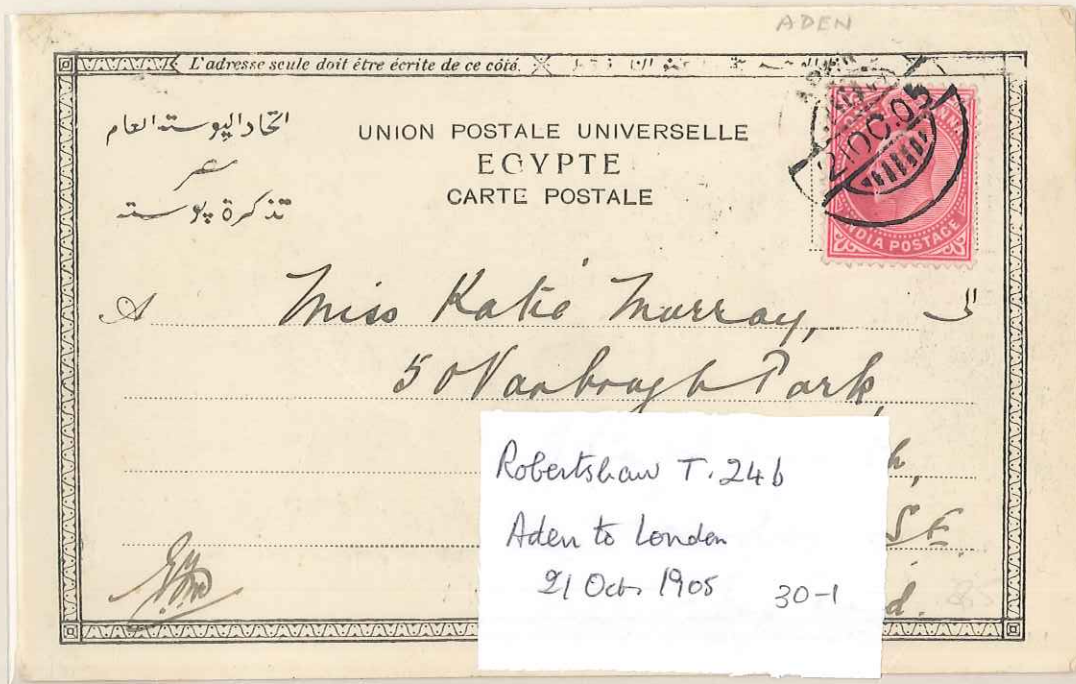 ADEN
L'adresse seule doit être écrite de ce côté.
اتحاد البوستة العام
مصر
تذكرة بوستة
UNION POSTALE UNIVERSELLE
EGYPTE
CARTE POSTALE
21 OC. 05
INDIA POSTAGE
A
الى
Miss Katie Murray,
50 Vanbrugh Park,
h,
SE
d.
Robertshaw T. 24b
Aden to London
21 Oct. 1905
30-1